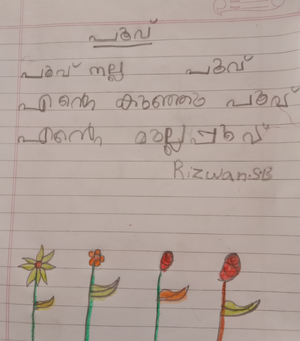 പൂവ്
പൂവ് നല്ല പൂവ്
എന്റെ കുഞ്ഞു പൂവ്
എന്റെ മുല്ലപ്പൂവ്
Rizwan.S.B